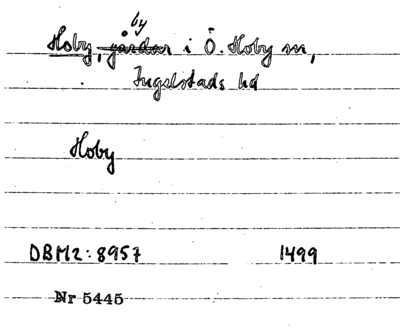 by
Hoby, gårdar i Ö. Hoby sn,
Ingelstads hd
Hoby
DBM2:8957 1499
Nr 5445